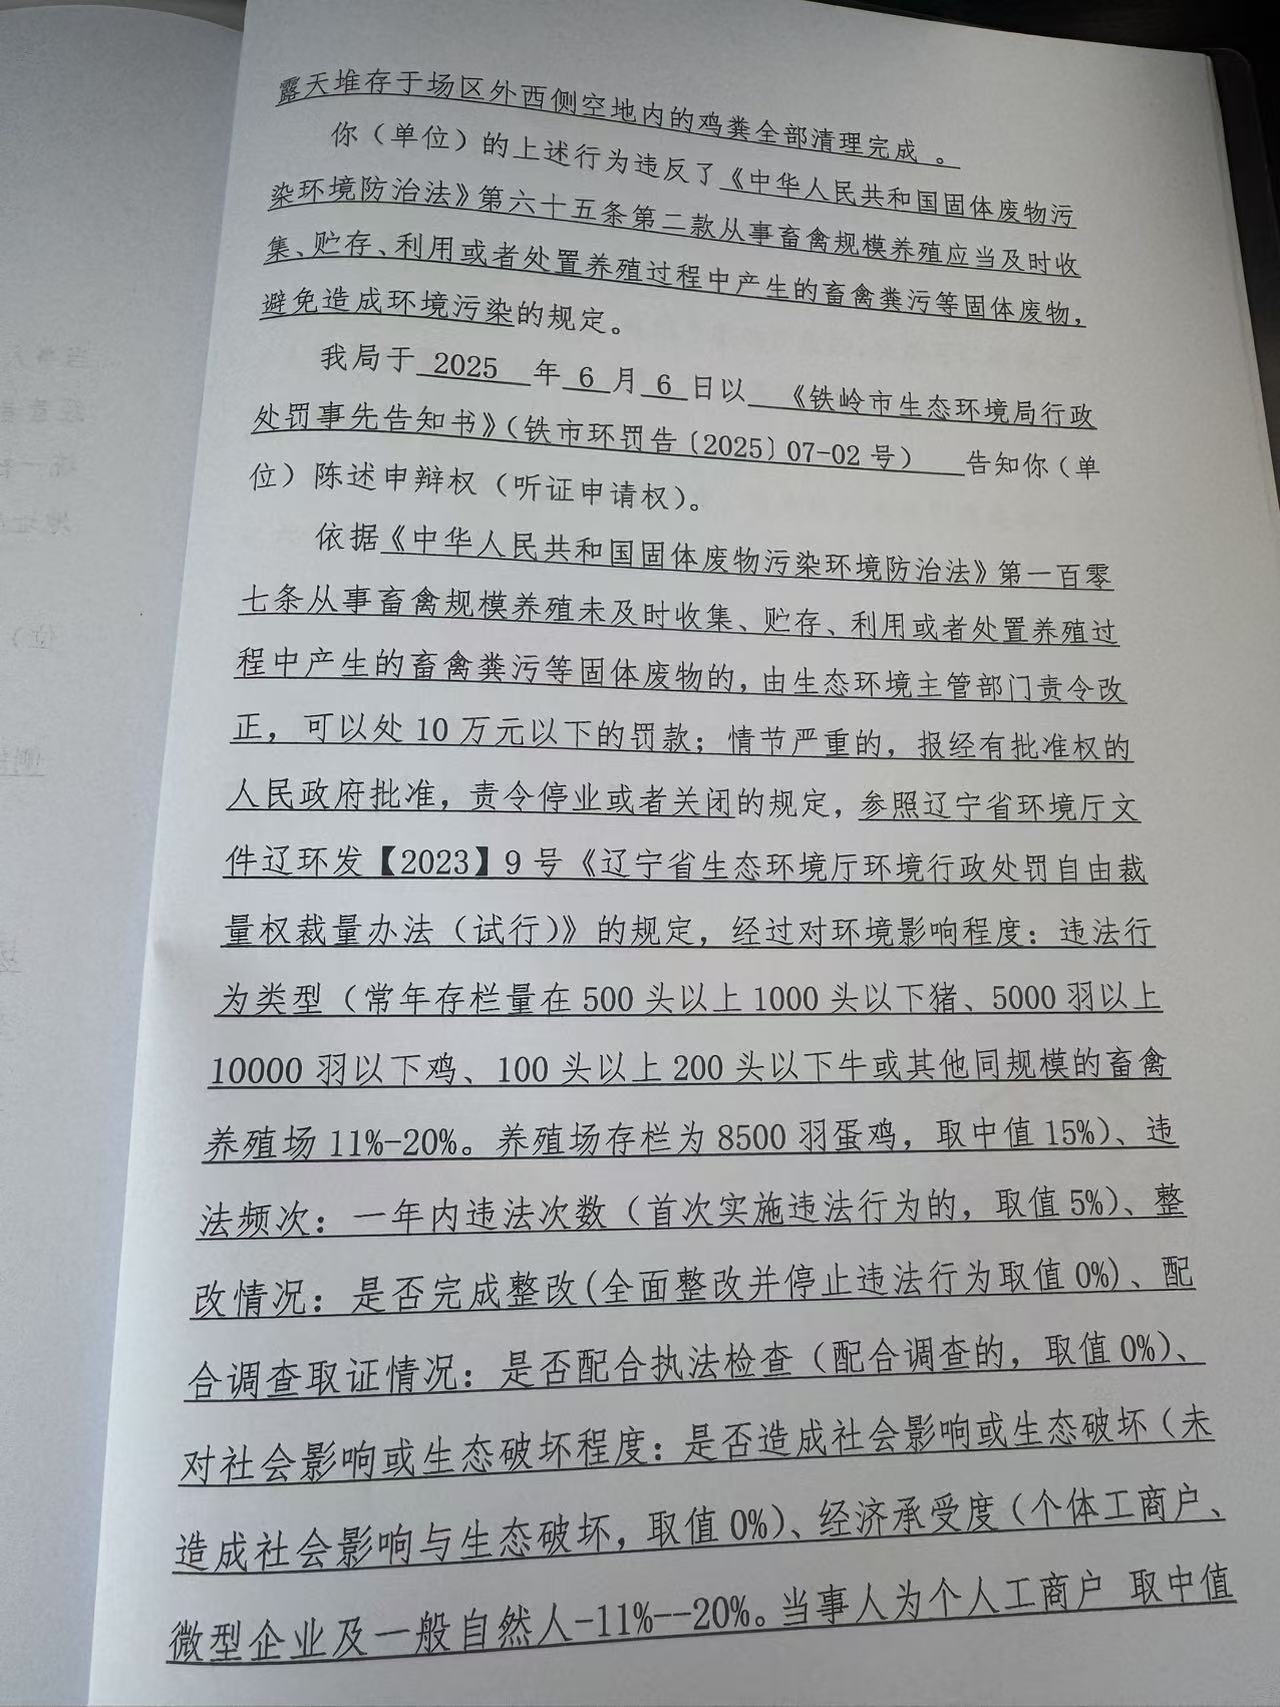 露天堆存于场区外西侧空地内的鸡粪全部清理完成 。
你（单位）的上述行为违反了《中华人民共和国固体废物污
染环境防治法》第六十五条第二款从事畜禽规模养殖应当及时收
集、贮存、利用或者处置养殖过程中产生的畜禽粪污等固体废物，
避免造成环境污染的规定。
我局于 2025 年 6 月 6 日以 《铁岭市生态环境局行政
处罚事先告知书》（铁市环罚告〔2025〕07-02 号） 告知你（单
位）陈述申辩权（听证申请权）。
依据《中华人民共和国固体废物污染环境防治法》第一百零
七条从事畜禽规模养殖未及时收集、贮存、利用或者处置养殖过
程中产生的畜禽粪污等固体废物的，由生态环境主管部门责令改
正，可以处 10 万元以下的罚款；情节严重的，报经有批准权的
人民政府批准，责令停业或者关闭的规定，参照辽宁省环境厅文
件辽环发【2023】9 号《辽宁省生态环境厅环境行政处罚自由裁
量权裁量办法（试行）》的规定，经过对环境影响程度：违法行
为类型（常年存栏量在 500 头以上 1000 头以下猪、5000 羽以上
10000 羽以下鸡、100 头以上 200 头以下牛或其他同规模的畜禽
养殖场 11%-20%。养殖场存栏为 8500 羽蛋鸡，取中值 15%）、违
法频次：一年内违法次数（首次实施违法行为的，取值 5%）、整
改情况：是否完成整改(全面整改并停止违法行为取值 0%）、配
合调查取证情况：是否配合执法检查（配合调查的，取值 0%）、
对社会影响或生态破坏程度：是否造成社会影响或生态破坏（未
造成社会影响与生态破坏，取值 0%）、经济承受度（个体工商户、
微型企业及一般自然人-11%--20%。当事人为个人工商户 取中值